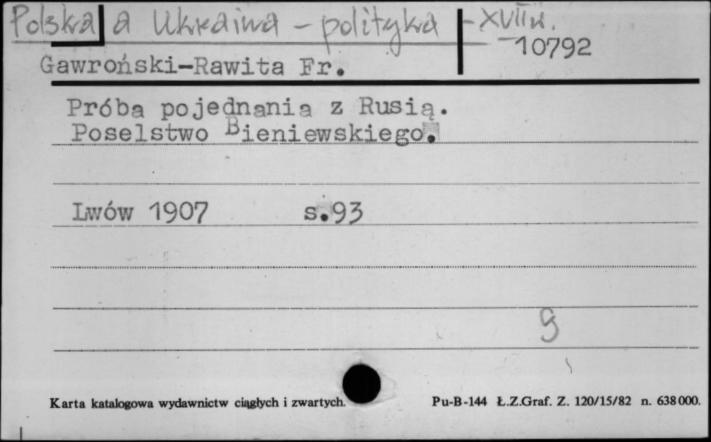 Polska a Ukraina - polityka - XVII w.
10792
Gawroński-Rawita Fr.
Próba pojednania z Rusią.
Poselstwo Bieniewskiego.
Lwów 1907 s.93
9
Karta katalogowa wydawnictw ciągłych i zwartych. Pu-B-144 Ł.Z.Graf. Z. 120/15/82 n. 638000.